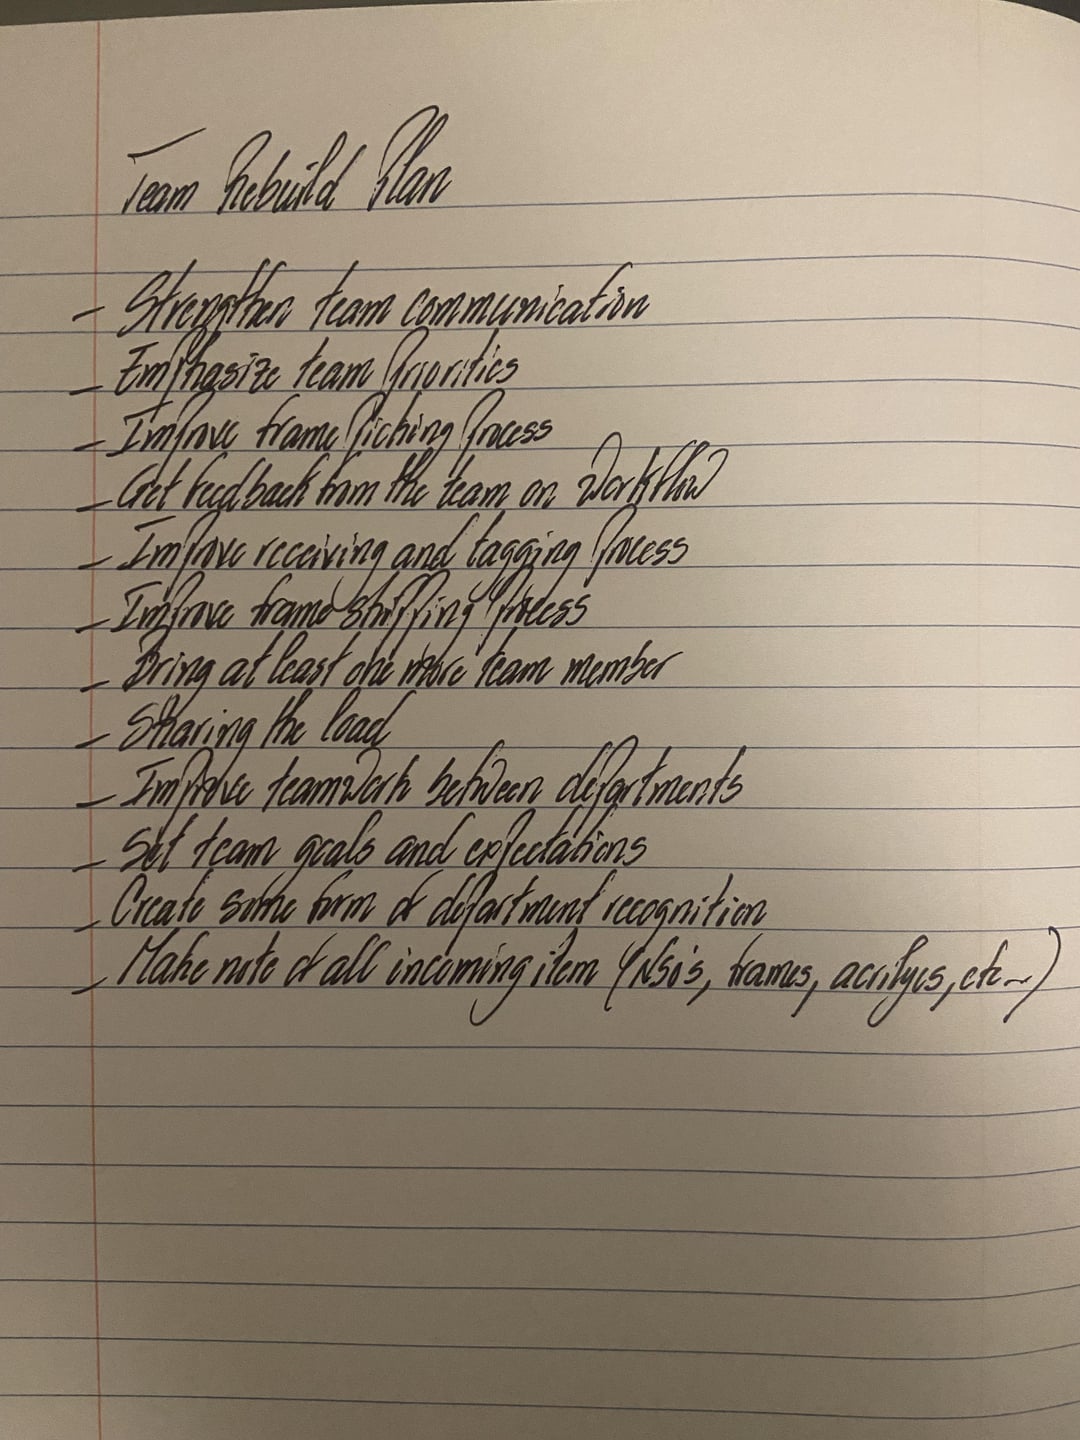 Team Rebuild Plan
- Strengthen team communication
- Emphasize team priorities
- Improve frame picking process
- Get feedback from the team on workflow
- Improve receiving and tagging process
- Improve frame shipping process
- Bring at least one more team member
- Sharing the load
- Improve teamwork between departments
- Set team goals and expectations
- Create some form of department recognition
- Make note of all incoming item (NSO's, frames, acrilycs, etc~)